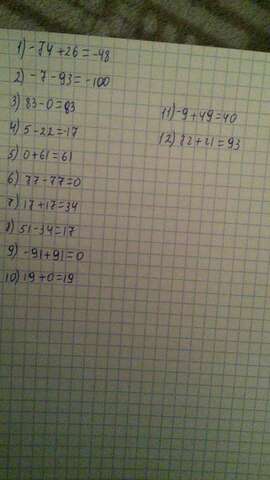 1) -74+26=-48
2) -7-93=-100
3) 83-0=83
4) 5-22=-17
5) 0+61=61
6) 77-77=0
7) 17+17=34
8) 51-34=17
9) -91+91=0
10) 19+0=19
11) -9+49=40
12) 72+21=93